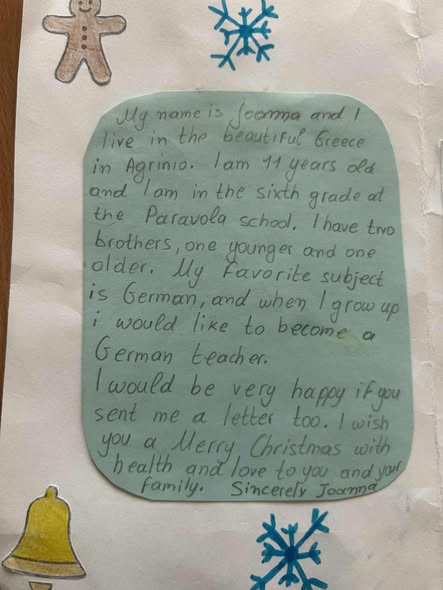 My name is Joanna and I
live in the beautiful Greece
in Agrinio. I am 11 years old
and I am in the sixth grade at
the Paravola school. I have two
brothers, one younger and one
older. My favorite subject
is German, and when I grow up
i would like to become a
German teacher.
I would be very happy if you
sent me a letter too. I wish
you a Merry Christmas with
health and love to you and your
family. Sincerely Joanna